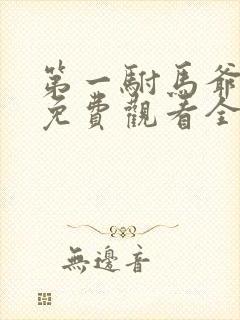 第一駙馬爺
免費觀看全
無邊音